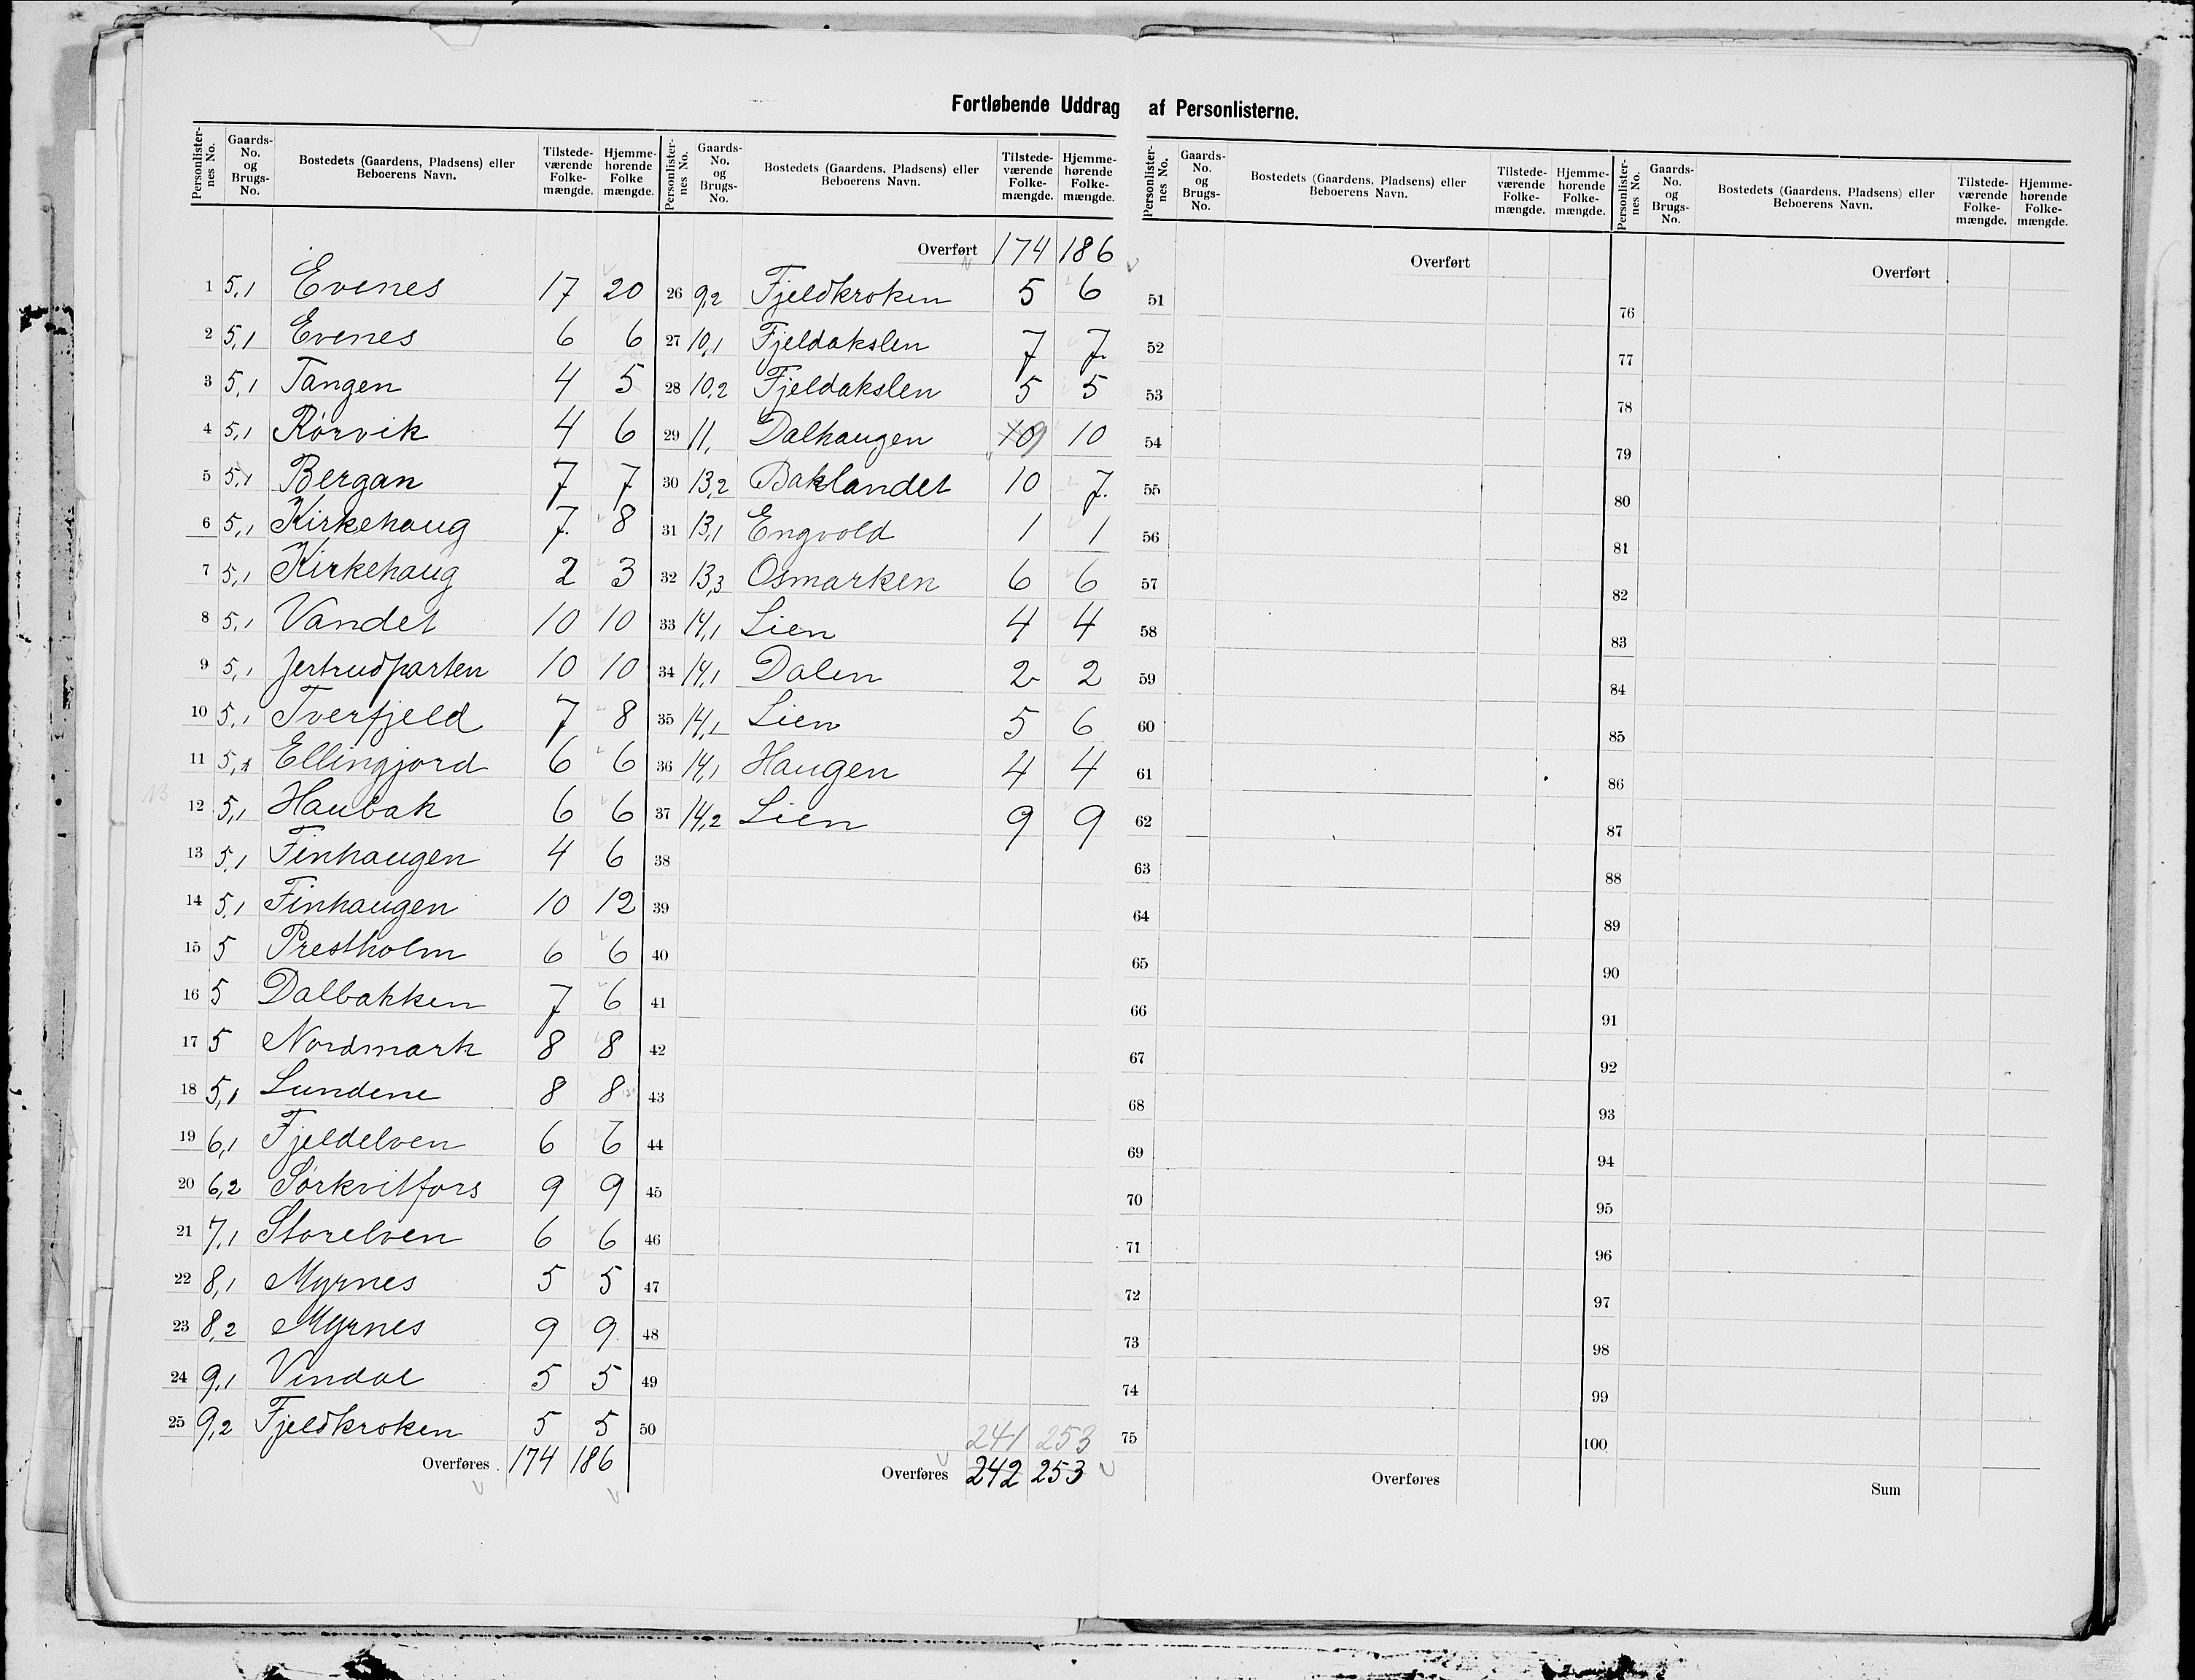 Fortløbende Uddrag af Personlisterne.
Personlister-nes No. Gaards-No. og Brugs-No. Bostedets (Gaardens, Pladsens) eller Beboerens Navn. Tilstede-værende Folke-mængde. Hjemme-hørende Folke mængde.
1 5,1 Evenes 17 20
2 5,1 Evenes 6 6
3 5,1 Tangen 4 5
4 5,1 Rørvik 4 6
5 5,1 Bergan 7 7
6 5,1 Kirkehaug 7. 8
7 5,1 Kirkehaug 2 3
8 5,1 Vandet 10 10
9 5,1 Jertrudparten 10 10
10 5,1 Tverfjeld 7 8
11 5,1 Ellingjord 6 6
12 5,1 Haubak 6 6
13 5,1 Finhaugen 4 6
14 5,1 Finhaugen 10 12
15 5 Prestholm 6 6
16 5 Dalbakken 7 6
17 5 Nordmark 8 8
18 5,1 Lundene 8 8
19 6,1 Fjeldelven 6 6
20 6,2 Sørkvitfors 9 9
21 7,1 Storelven 6 6
22 8,1 Myrnes 5 5
23 8,2 Myrnes 9 9.
24 9,1 Vindal 5 5
25 9,2 Fjeldkroken 5 5
Overføres 174 186
Personlister-nes No. Gaards-No. og Brugs-No. Bostedets (Gaardens, Pladsens) eller Beboerens Navn. Tilstede-værende Folke-mængde. Hjemme-hørende Folke-mængde.
Overført 174 186
26 9,2 Fjeldkroken 5 6
27 10,1 Fjeldakslen 7 7.
28 10,2 Fjeldakslen 5 5
29 11, Dalhaugen 10 9 10
30 13,2 Baklandet 10 7.
31 13,1 Engvold 1 1
32 13,3 Osmarken 6 6
33 14,1 Lien 4 4
34 14,1 Dalen 2 2
35 14,1 Lien 5 6
36 14,1 Haugen 4 4
37 14,2 Lien 9 9
38
39
40
41
42
43
44
45
46
47
48
49
50
241 253
Overføres 242 253
Personlister-nes No. Gaards-No. og Brugs-No. Bostedets (Gaardens, Pladsens) eller Beboerens Navn. Tilstede-værende Folke-mængde. Hjemme-hørende Folke-mængde.
Overført
51
52
53
54
55
56
57
58
59
60
61
62
63
64
65
66
67
68
69
70
71
72
73
74
75
Overføres
Personlister-nes No. Gaards-No. og Brugs-No. Bostedets (Gaardens, Pladsens) eller Beboerens Navn. Tilstede-værende Folke-mængde. Hjemme-hørende Folke-mængde.
Overført
76
77
78
79
80
81
82
83
84
85
86
87
88
89
90
91
92
93
94
95
96
97
98
99
100
Sum